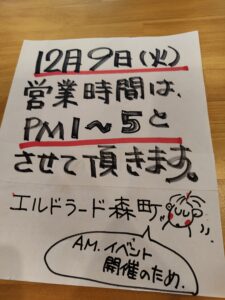 12月9日(火)
営業時間は、
PM1〜5と
させて頂きます。
エルドラード森町
AM.イベント
開催のため.